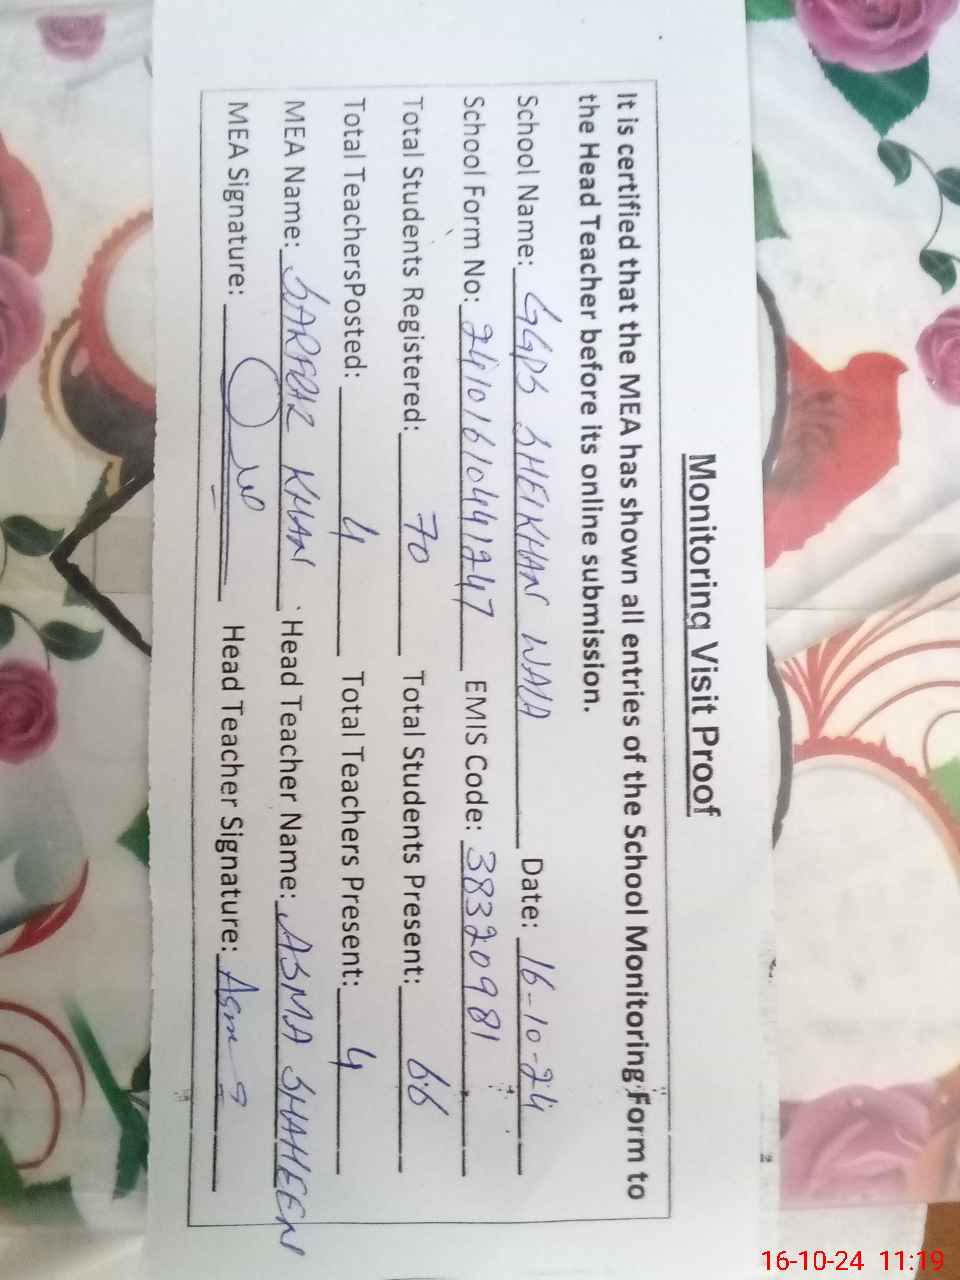 Monitoring Visit Proof
It is certified that the MEA has shown all entries of the School Monitoring Form to
the Head Teacher before its online submission.
School Name: GGPS SHEIKHAN WALA Date: 16-10-24
School Form No: 24101610441247 EMIS Code: 38320981
Total Students Registered: 70 Total Students Present: 66
Total TeachersPosted: 4 Total Teachers Present: 4
MEA Name: SARFRAZ KHAN Head Teacher Name: ASMA SHAHEEN
MEA Signature: Head Teacher Signature: Asma
16-10-24 11:19